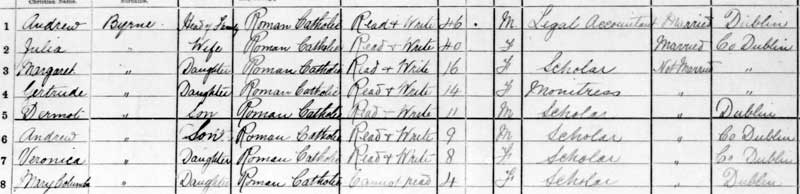 1 Andrew Byrne Head of Family Roman Catholic Read & Write 46 . M Legal Accountant Married Dublin
2 Julia " Wife Roman Catholic Read & Write 40 F Married Co Dublin
3 Margaret " Daughter Roman Catholic Read & Write 16 F Scholar Not Married "
4 Gertrude " Daughter Roman Catholic Read & Write 14 F Monitress " "
5 Dermot " Son Roman Catholic Read & Write 11 M Scholar " Dublin
6 Andrew " Son Roman Catholic Read & Write 9 M Scholar " Co Dublin
7 Veronica " Daughter Roman Catholic Read & Write 8 F Scholar " Co Dublin
8 Mary Columba " Daughter Roman Catholic Cannot read 4 F Scholar " Dublin